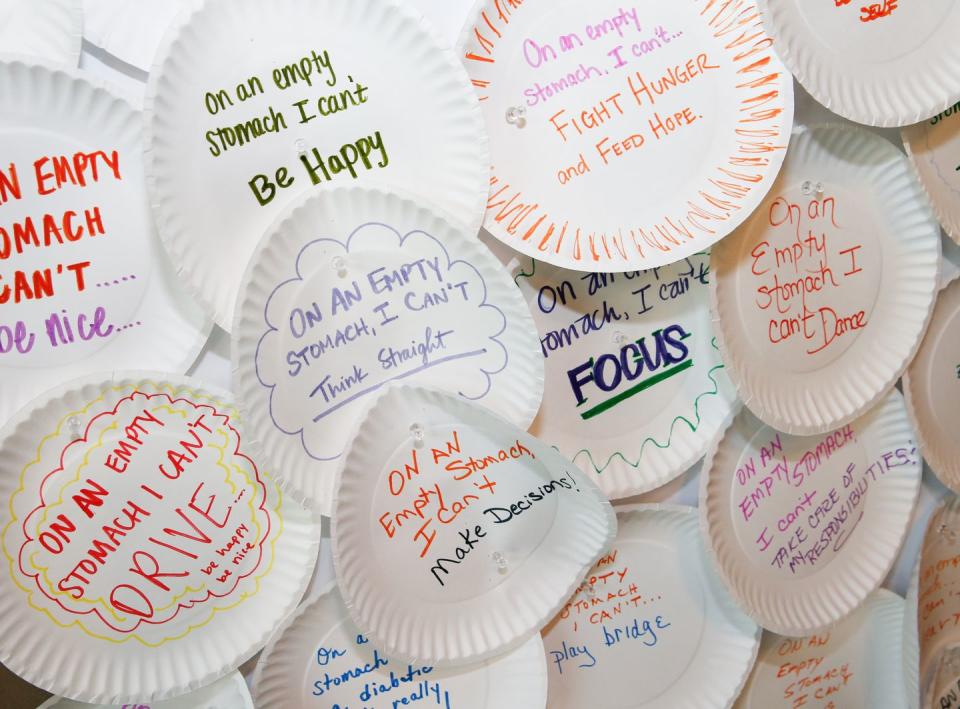 on an empty
stomach I can't
Be Happy
On an empty
stomach, I can't...
FIGHT HUNGER
and FEED HOPE.
SELF
EMPTY
CAN'T.....
be nice....
ON AN EMPTY
STOMACH, I CAN'T
Think Straight
On an empty
stomach, I can't
FOCUS
On an
Empty
stomach I
can't Dance
ON AN EMPTY
STOMACH I CAN'T
DRIVE....
be happy
be nice
ON AN
Empty Stomach,
I Can't
Make Decisions!
ON AN
EMPTY STOMACH,
I can't
TAKE CARE OF
MY RESPONSIBILITIES!
AN
EMPTY
STOMACH
I CAN'T...
play bridge
On a
stomach
diabetic
really
ON AN
EMPTY
STOMACH
I CAN'T